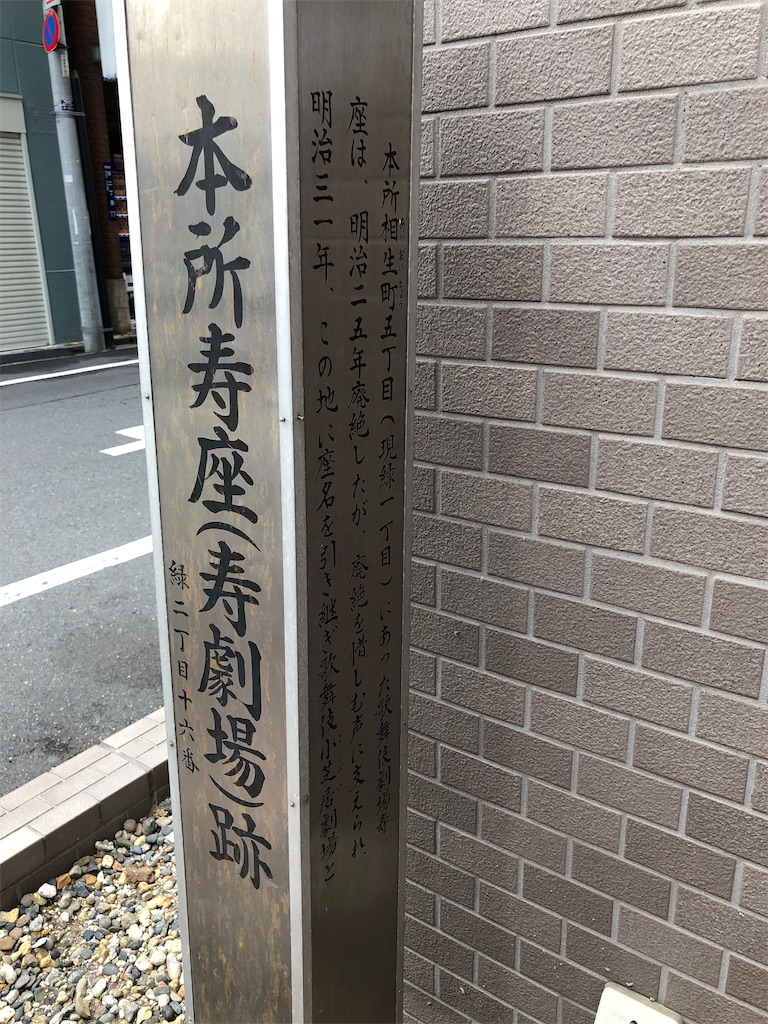 本所寿座(寿劇場)跡
緑二丁目十六番
本所相生町五丁目(現緑一丁目)にあった歌舞伎劇場寿
座は、明治二五年廃絶したが、廃絶を惜しむ声に支えられ、
明治三一年、この地に座名を引き継ぎ歌舞伎小芝居劇場と